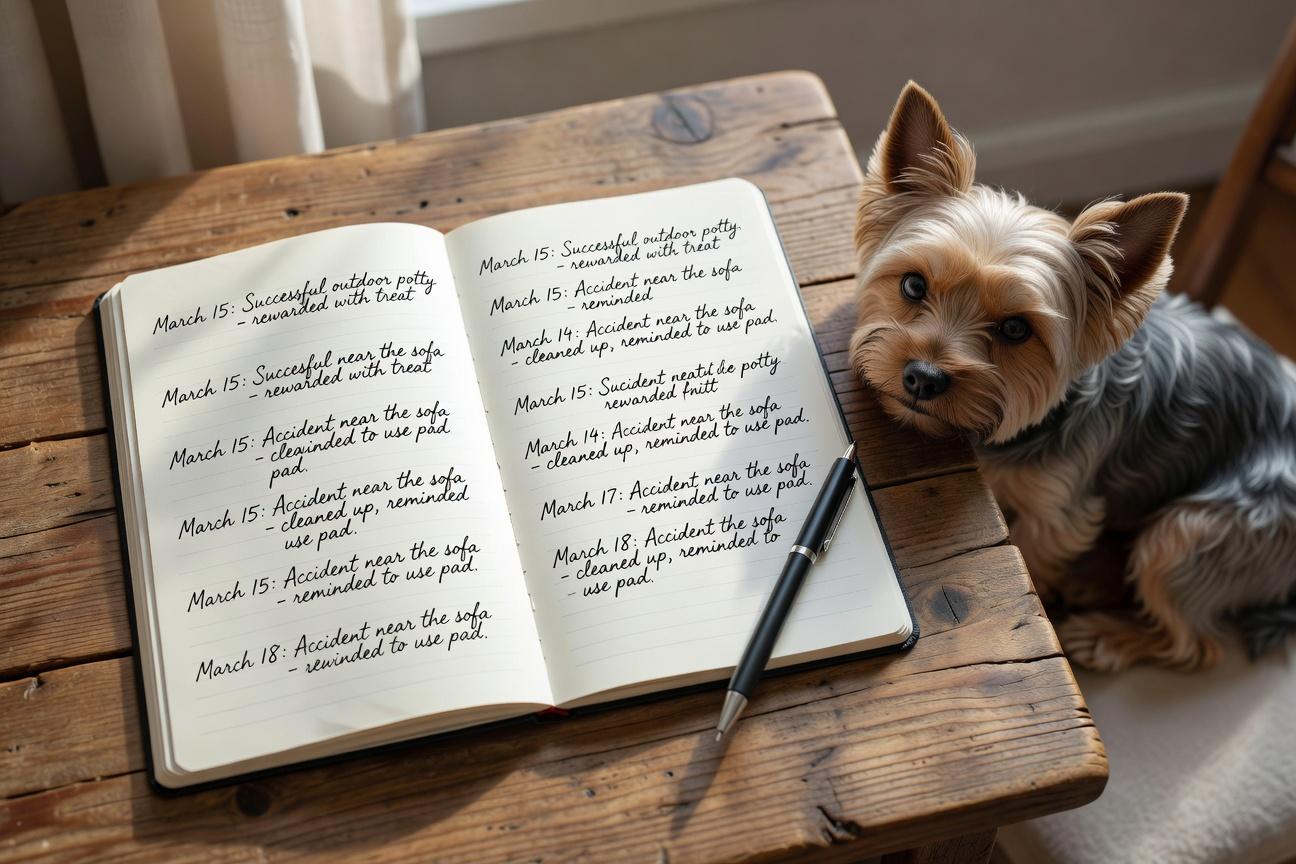 March 15: Successful outdoor potty
- rewarded with treat
March 15: Succesful near the sofa
- rewarded with treat
March 15: Accident near the sofa
- cleainded to use pad
pad.
March 15: Accident near the sofa
- cleaned up, reminded
use pad.
March 15: Accident near the sofa
- reminded to use pad.
March 18: Accident near the sofa
- rewinded to use pad.
March 15: Successful outdoor potty.
- rewarded with treat
March 15: Accident near the sofa
- reminded
March 14: Accident near the sofa
- cleaned up, reminded to use pad.
March 15: Sucident potty
rewarded
March 14: Accident near the sofa
- cleaned up, reminded to use pad.
March 17: Accident near the sofa
- reminded to use pad.
March 18: Accident the sofa
- cleaned up, reminded to
- use pad.